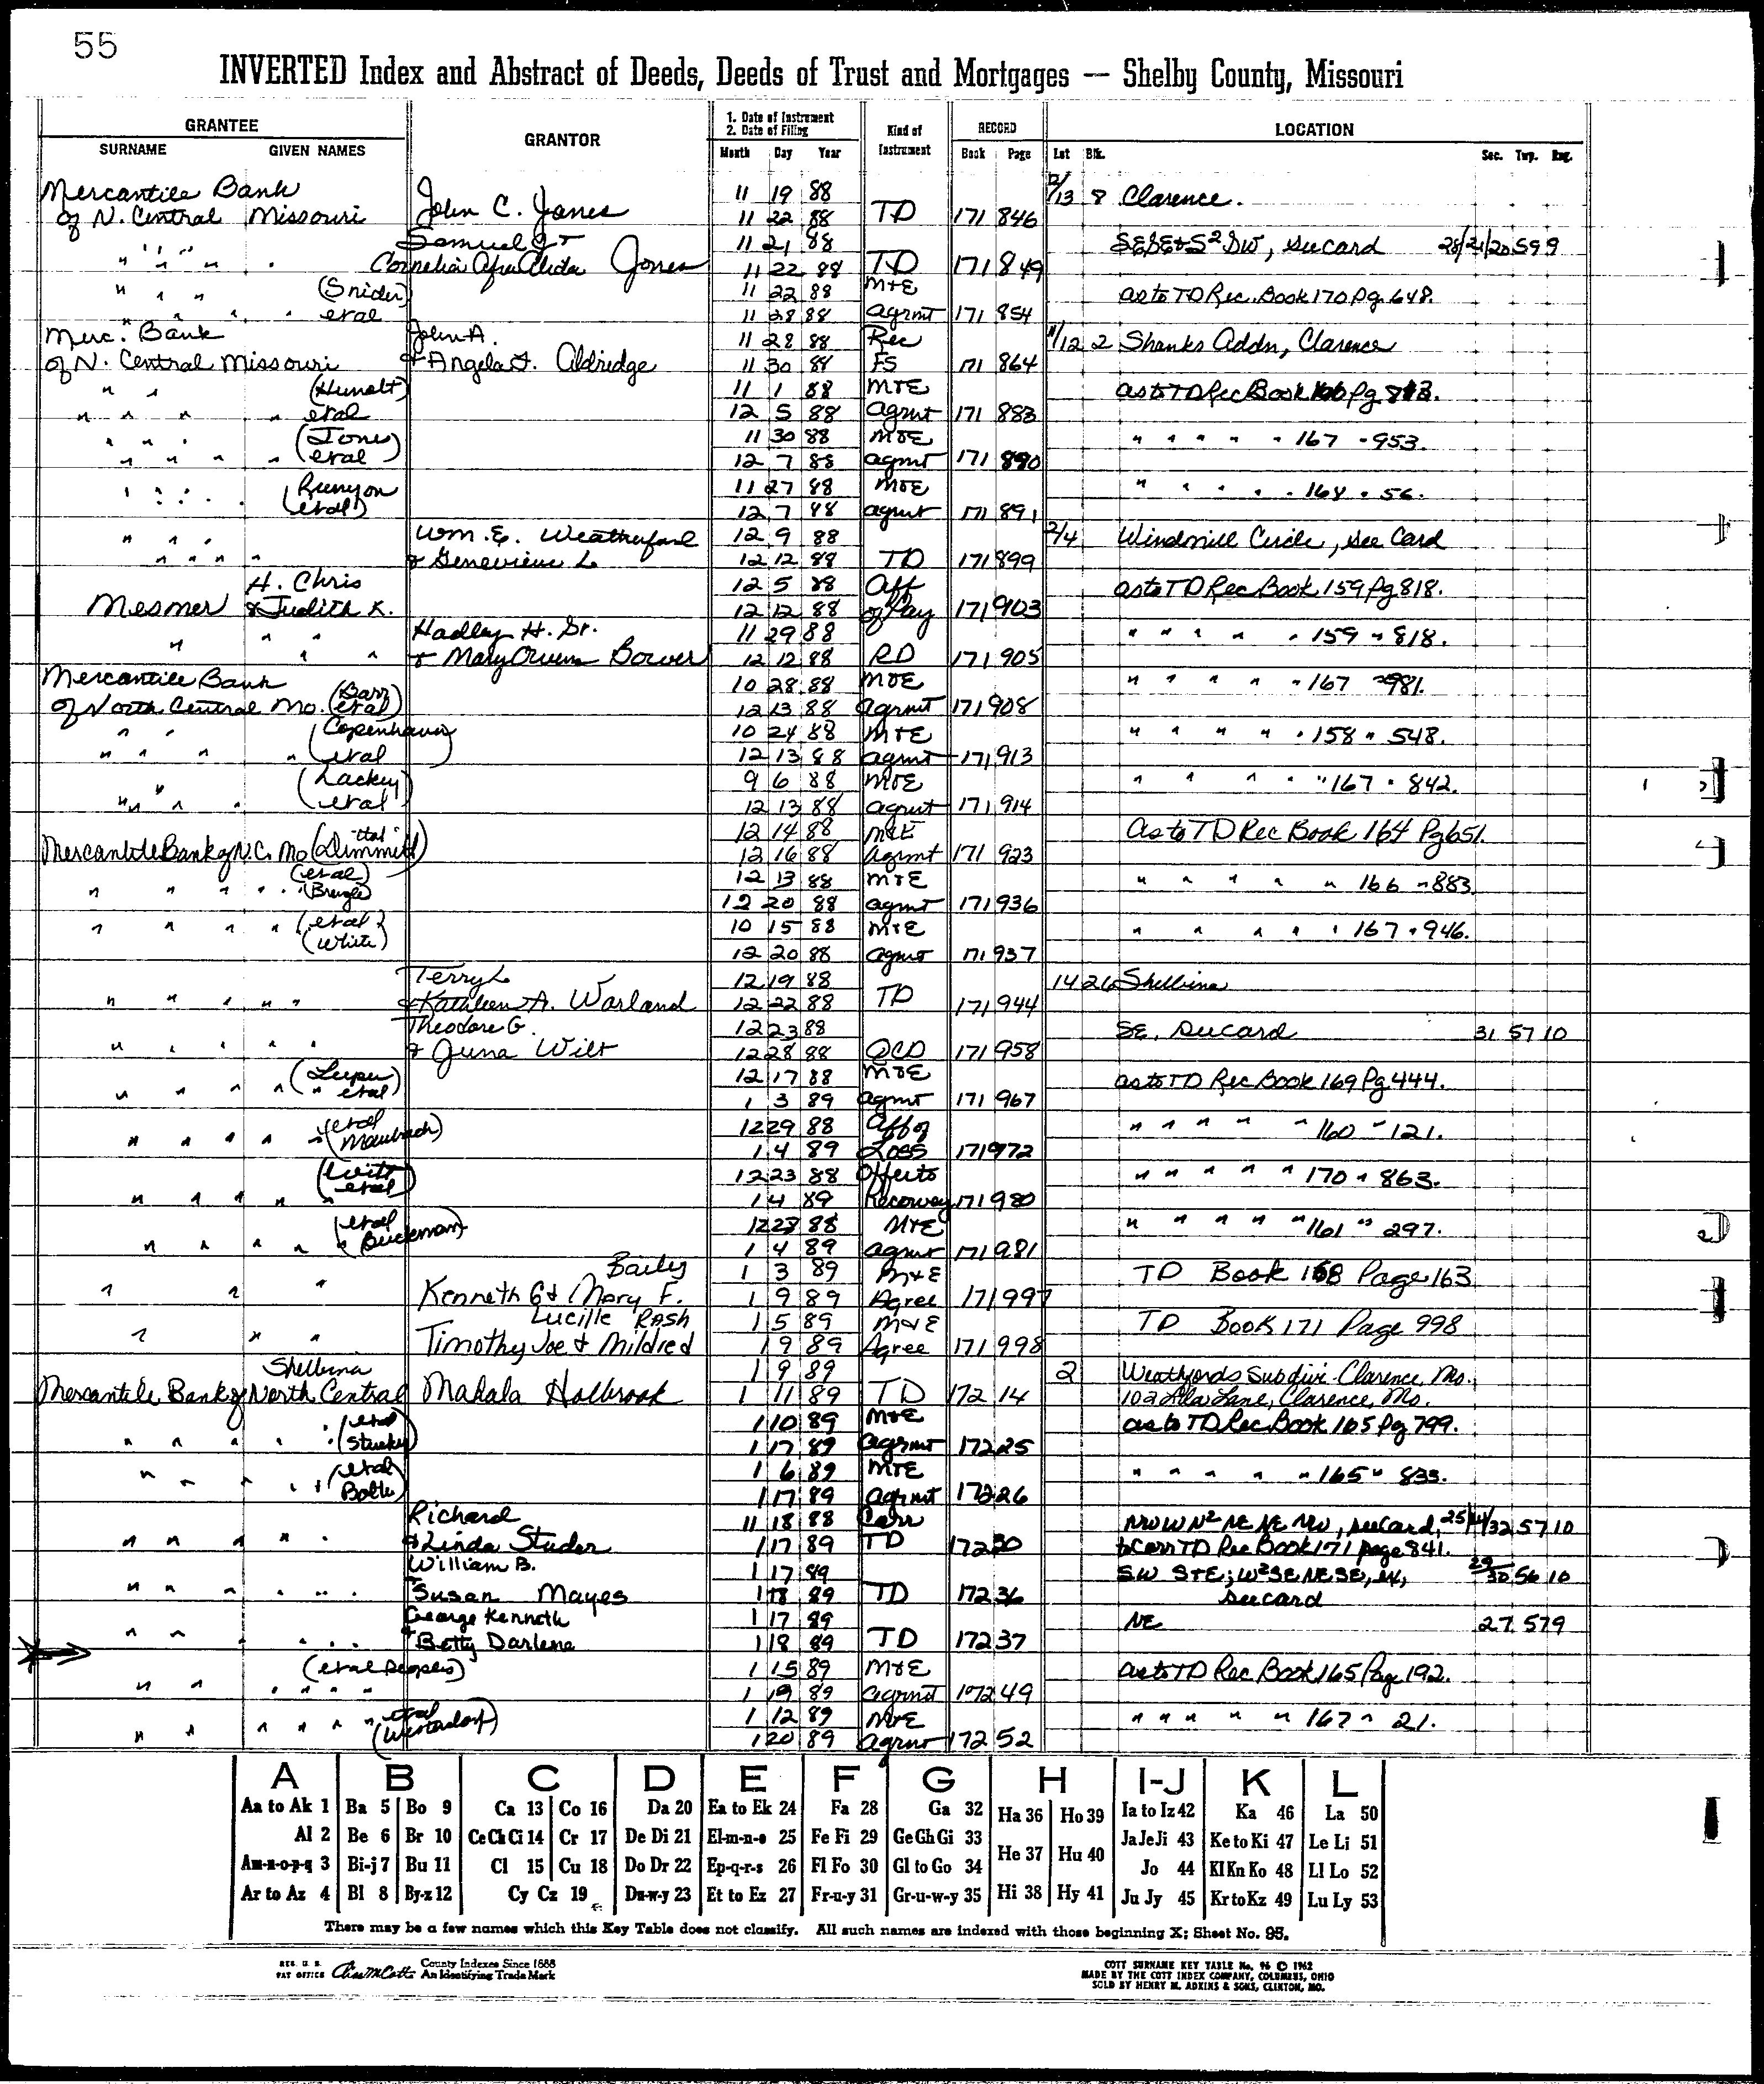 55
INVERTED Index and Abstract of Deeds, Deeds of Trust and Mortgages — Shelby County, Missouri
GRANTEE GRANTOR 1. Date of Instrument 2. Date of Filing Kind of Instrument RECORD LOCATION
SURNAME GIVEN NAMES Month Day Year Book Page Lot Blk. Sec. Twp. Rng.
Mercantile Bank 11 19 88 12/13 8 Clarence.
of N. Central Missouri John C. Jones 11 22 88 TD 171 846
Samuel J + 11 21 88 SESE+S² SW, see card 59 9
" " " " Cornelia Jones 11 22 88 TD 171 849
" " " (Snider) 11 22 88 M+E as to TD Rec. Book 170 Pg. 648.
" " " " etal 11 28 88 Agrmt 171 854
Merc. Bank John A. 11 28 88 Rec 11/12 2 Shanks Addn, Clarence
of N. Central Missouri + Angela F. Aldridge 11 30 88 FS 171 864
" " (Hunolt) 11 1 88 M+E as to TD Rec Book 166 Pg 813.
" " " " etal 12 5 88 Agmt 171 883
" " " (Jones) 11 30 88 M+E " " " " " 167 " 953.
" " " " etal 12 7 88 agmt 171 890
" " " (Runyon 11 27 88 M+E " " " " " 168 " 56.
etal) 12 7 88 agmt 171 891
" " " Wm. E. Weatherford 12 9 88 2/4 Windmill Circle, see Card
" " " " + Genevieve L 12 12 88 TD 171 899
H. Chris 12 5 88 Aff as to TD Rec Book 159 Pg 818.
Mesmer + Judith K. 12 12 88 of Pay 171 903
" " Hadley H. Sr. 11 29 88 " " " " " 159 " 818.
" " + Mary Owens Bower 12 12 88 RD 171 905
Mercantile Bank 10 28 88 M+E " " " " " 167 " 981.
of North Central Mo. (Barr etal) 12 13 88 Agrmt 171 908
" " (Copenhaver 10 24 88 M+E " " " " " 158 " 548.
" " " " etal) 12 13 88 agmt 171 913
" (Lackey 9 6 88 M+E " " " " " 167 " 842.
" " " etal) 12 13 88 agmt 171 914
etal 12 14 88 M+E As to TD Rec Book 164 Pg 651.
Mercantile Bank of N.C. Mo (Dimmitt) 12 16 88 Agrmt 171 923
(etal) 12 13 88 M+E " " " " " 166 " 883.
" " " " 12 20 88 agmt 171 936
" " " " (etal) 10 15 88 M+E " " " " " 167 " 946.
(White) 12 20 88 agmt 171 937
Terry L 12 19 88 14 26 Shelbina
" " " " " + Kathleen A. Warland 12 22 88 TD 171 944
Theodore G. 12 23 88 SE, see card 31 57 10
" " " " " + Juna Wilt 12 28 88 QCD 171 958
" (Leeper 12 17 88 M+E as to TD Rec Book 169 Pg 444.
" " " " etal) 1 3 89 agmt 171 967
(etal 12 29 88 Aff of " " " " " 160 " 121.
" " " " " Maubach) 1 4 89 Loss 171 972
(Witt 12 23 88 Offer to " " " " " 170 " 863.
" " " " " etal) 1 4 89 Reconvey 171 980
(etal 12 23 88 M+E " " " " " 161 " 297.
" " " " " Buckman) 1 4 89 agmt 171 981
Bailey 1 3 89 M+E TD Book 168 Page 163
" " " Kenneth G + Mary F. 1 9 89 Agree 171 997
Lucille Rash 1 5 89 M+E TD Book 171 Page 998
" " " Timothy Joe + Mildred 1 9 89 Agree 171 998
Shelbina 1 9 89 2 Weatherfords Subdivi. Clarence, Mo.
Mercantile Bank of North Central Mahala Holbrook 1 11 89 TD 172 14 102 Lane, Clarence, Mo.
(etal 1 10 89 M+E as to TD Rec Book 165 Pg 799.
" " " " " Stuckey) 1 17 89 Agrmt 172 25
(etal 1 6 89 M+E " " " " " 165 " 833.
" " " " " Bolte) 1 17 89 Agrmt 172 26
Richard 11 18 88 Corr NWW N² NE NE NW, see card, 32 57 10
" " " " " + Linda Studer 1 17 89 TD 172 30 to Corr TD Rec Book 171 page 841.
William B. 1 17 89 SW SE; W²SE NE SE, 29/30 56 10
" " " " " + Susan Mayes 1 18 89 TD 172 36 see card
George Kenneth 1 17 89 NE 27 57 9
" " " " " + Betty Darlene 1 18 89 TD 172 37
(etal Peoples) 1 15 89 M+E as to TD Rec. Book 165 Page 192.
" " " " " " 1 19 89 agrmt 172 49
etal 1 12 89 M+E " " " " " 167 " 21.
" " " " " " (Westerdorf) 1 20 89 Agrmt 172 52
A B C D E F G H I-J K L
Aa to Ak 1 Ba 5 Bo 9 Ca 13 Co 16 Da 20 Ea to Ek 24 Fa 28 Ga 32 Ha 36 Ho 39 Ia to Iz 42 Ka 46 La 50
Al 2 Be 6 Br 10 Ce Ch Ci 14 Cr 17 De Di 21 El-m-n-o 25 Fe Fi 29 Ge Gh Gi 33 He 37 Hu 40 Ja Je Ji 43 Ke to Ki 47 Le Li 51
Am-n-o-p-q 3 Bi-j 7 Bu 11 Cl 15 Cu 18 Do Dr 22 Ep-q-r-s 26 Fl Fo 30 Gl to Go 34 Jo 44 Kl Kn Ko 48 Ll Lo 52
Ar to Az 4 Bl 8 By-z 12 Cy Cz 19 Du-w-y 23 Et to Ez 27 Fr-u-y 31 Gr-u-w-y 35 Hi 38 Hy 41 Ju Jy 45 Kr to Kz 49 Lu Ly 53
There may be a few names which this Key Table does not classify. All such names are indexed with those beginning X; Sheet No. 95.
REG. U. S. PAT OFFICE County Indexes Since 1888 An Identifying Trade Mark
COTT SURNAME KEY TABLE No. 96 © 1962
MADE BY THE COTT INDEX COMPANY, COLUMBUS, OHIO
SOLD BY HENRY M. ADKINS & SONS, CLINTON, MO.